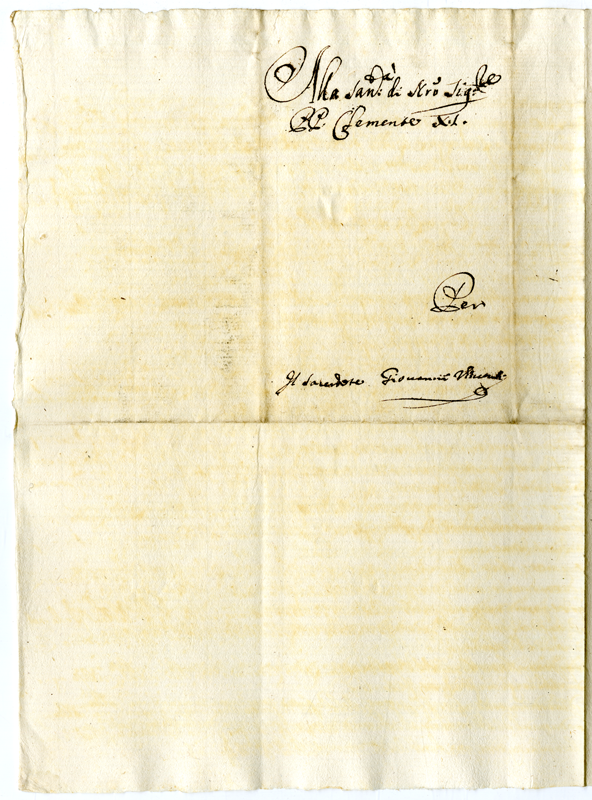 Alla San.tà di Nro Sig.re
PP. Clemente XI.
Per
Il Sacerdote Giovanni